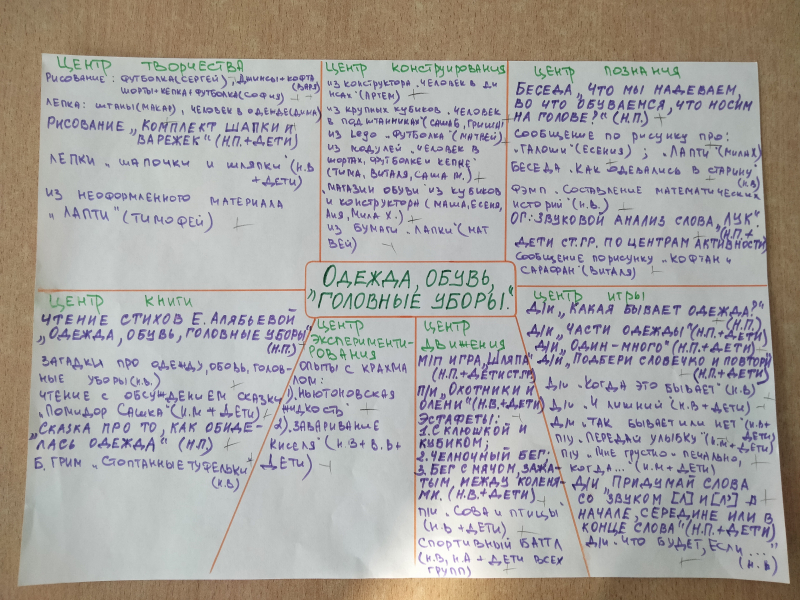 ЦЕНТР ТВОРЧЕСТВА
РИСОВАНИЕ: ФУТБОЛКА(СЕРГЕЙ), ДЖИНСЫ+КОФТА
(ВАРЯ)
ШОРТЫ+КЕПКА+ФУТБОЛКА(СОФИЯ)
ЛЕПКА: ШТАНЫ(МАКАР), ЧЕЛОВЕК В ОДЕЖДЕ(ДИНА)
РИСОВАНИЕ „КОМПЛЕКТ ШАПКИ И
ВАРЕЖЕК" (Н.П.+ДЕТИ)
ЛЕПКИ „ШАПОЧКИ И ШЛЯПКИ" (Н.В
+ДЕТИ)
ИЗ НЕОФОРМЛЕННОГО МАТЕРИАЛА
„ЛАПТИ" (ТИМОФЕЙ)
ЦЕНТР КОНСТРУИРОВАНИЯ
ИЗ КОНСТРУКТОРА „ЧЕЛОВЕК В ДЖИ
НСАХ" (АРТЕМ)
ИЗ КРУПНЫХ КУБИКОВ „ЧЕЛОВЕК
В ПОДШТАННИКАХ" (САША Б, ГРИША)
ИЗ LEGO „ФУТБОЛКА" (МАТВЕЙ)
ИЗ МОДУЛЕЙ „ЧЕЛОВЕК В
ШОРТАХ, ФУТБОЛКЕ И КЕПКЕ"
(ТИМА, ВИТАЛЯ, САША М.)
„МАГАЗИН ОБУВИ" ИЗ КУБИКОВ
И КОНСТРУКТОРА (МАША, ЕСЕНИЯ,
АНЯ, МИЛА Х.)
ИЗ БУМАГИ „ЛАПКИ" (МАТ
ВЕЙ)
ЦЕНТР ПОЗНАНИЯ
БЕСЕДА „ЧТО МЫ НАДЕВАЕМ,
ВО ЧТО ОБУВАЕМСЯ, ЧТО НОСИМ
НА ГОЛОВЕ?" (Н.П.)
СООБЩЕНИЕ ПО РИСУНКУ ПРО:
„ГАЛОШИ" (ЕСЕНИЯ); „ЛАПТИ" (МИЛА Х)
БЕСЕДА „КАК ОДЕВАЛИСЬ В СТАРИНУ"
(Н.В)
ФЭМП „СОСТАВЛЕНИЕ МАТЕМАТИЧЕСКИХ
ИСТОРИЙ" (Н.В.)
ОГ: ЗВУКОВОЙ АНАЛИЗ СЛОВА „ЛУК".
(Н.П.+
ДЕТИ СТ.ГР. ПО ЦЕНТРАМ АКТИВНОСТИ)
СООБЩЕНИЕ ПО РИСУНКУ „КОФТАН И
САРАФАН" (ВИТАЛЯ)
ОДЕЖДА, ОБУВЬ,
„ГОЛОВНЫЕ УБОРЫ."
ЦЕНТР КНИГИ
ЧТЕНИЕ СТИХОВ Е. АЛЯБЬЕВОЙ
„ОДЕЖДА, ОБУВЬ, ГОЛОВНЫЕ УБОРЫ"
(Н.П.)
ЗАГАДКИ ПРО ОДЕЖДУ, ОБУВЬ, ГОЛОВ-
НЫЕ УБОРЫ (Н.В.)
ЧТЕНИЕ С ОБСУЖДЕНИЕМ СКАЗКИ
„ПОМИДОР САШКА" (И.М + ДЕТИ)
„СКАЗКА ПРО ТО, КАК ОБИДЕ-
ЛАСЬ ОДЕЖДА" (Н.П.)
Б. ГРИМ „СТОПТАННЫЕ ТУФЕЛЬКИ"
(Н.В)
ЦЕНТР
ЭКСПЕРИМЕНТИ-
РОВАНИЯ
ОПЫТЫ С КРАХМА
ЛОМ:
1). НЬЮТОНОВСКАЯ
ЖИДКОСТЬ
2). ЗАВАРИВАНИЕ
КИСЕЛЯ (Н.В+В.В+
ДЕТИ)
ЦЕНТР
ДВИЖЕНИЯ
М/П ИГРА „ШЛЯПА"
(Н.П.+ДЕТИ СТ.ГР)
П/И „ОХОТНИКИ И
ОЛЕНИ" (Н.В.+ДЕТИ)
ЭСТАФЕТЫ:
1. С КЛЮШКОЙ И
КУБИКОМ;
2. ЧЕЛНОЧНЫЙ БЕГ;
3. БЕГ С МЯЧОМ, ЗАЖА-
ТЫМ, МЕЖДУ КОЛЕНЯ-
МИ. (Н.В.+ДЕТИ)
П/И „СОВА И ПТИЦЫ"
(Н.В +ДЕТИ)
СПОРТИВНЫЙ БАТТЛ
(Н.В, Н.А + ДЕТИ ВСЕХ
ГРУПП)
ЦЕНТР ИГРЫ
Д/И „КАКАЯ БЫВАЕТ ОДЕЖДА?"
(Н.П.)
Д/И „ЧАСТИ ОДЕЖДЫ" (Н.П.+ДЕТИ)
Д/И „ОДИН-МНОГО" (Н.П.+ДЕТИ)
Д/И „ПОДБЕРИ СЛОВЕЧКО И ПОВТОРИ"
(Н.П.+ДЕТИ)
Д/И „КОГДА ЭТО БЫВАЕТ" (Н.В)
Д/И „4 ЛИШНИЙ" (Н.В+ДЕТИ)
Д/И „ТАК БЫВАЕТ ИЛИ НЕТ" (Н.В+
ДЕТИ)
П/У „ПЕРЕДАЙ УЛЫБКУ" (И.М+ДЕТИ)
П/У „МНЕ ГРУСТНО И ПЕЧАЛЬНО,
КОГДА..." (И.М + ДЕТИ)
Д/И „ПРИДУМАЙ СЛОВА
СО ЗВУКОМ [Л] И [Л'] В
НАЧАЛЕ, СЕРЕДИНЕ ИЛИ В
КОНЦЕ СЛОВА" (Н.П.+ДЕТИ)
Д/И „ЧТО БУДЕТ, ЕСЛИ ..."
(Н.В)